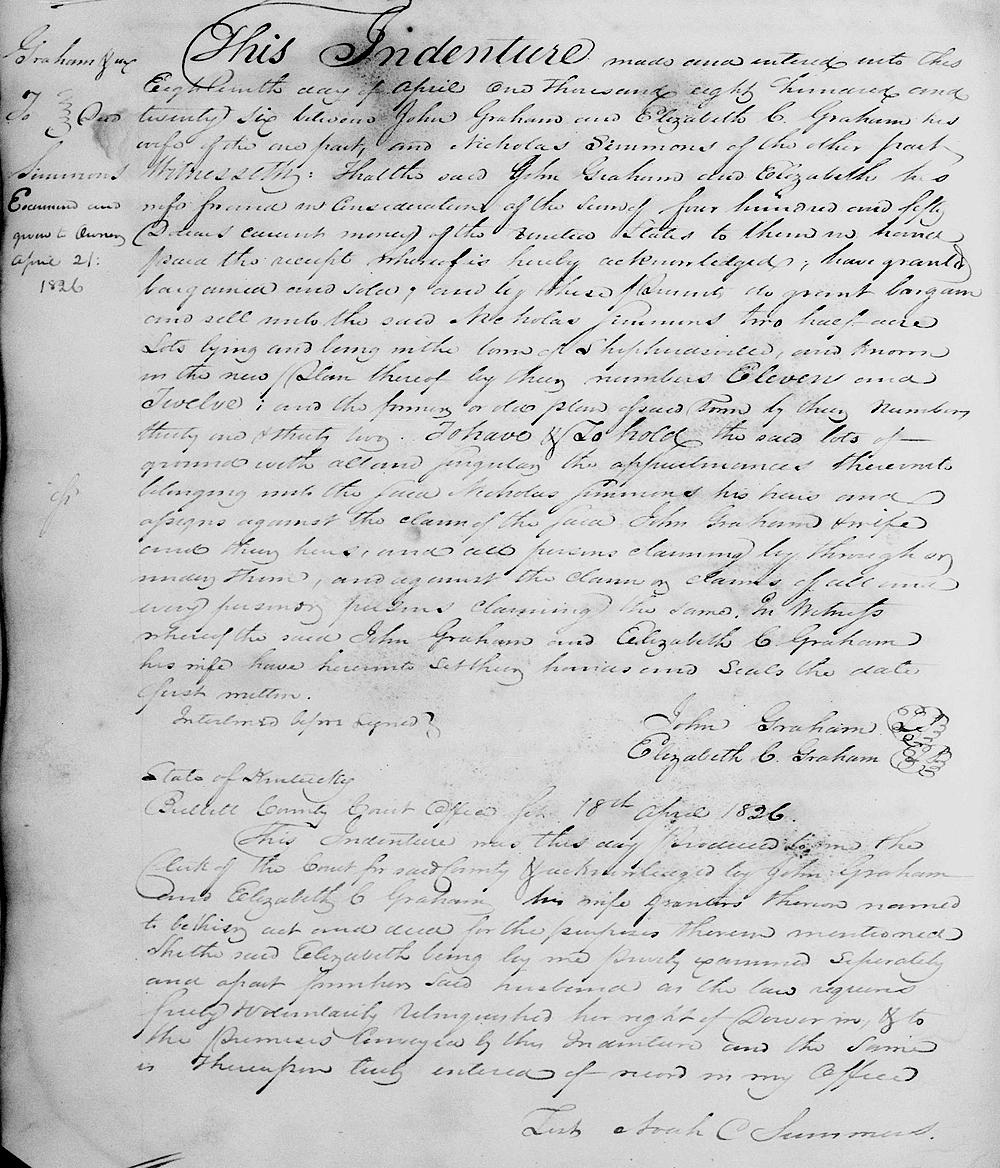 Graham & ux
To Deed
Simmons
Examined and
given to Owner
April 21:
1826
This Indenture made and entered into this
Eighteenth day of April one thousand eight hundred and
twenty six between John Graham and Elizabeth C. Graham his
wife of the one part, and Nicholas Simmons of the other part
Witnesseth: That the said John Graham and Elizabeth his
wife for and in Consideration of the sum of four hundred and fifty
Dollars current money of the United States to them in hand
paid the receipt whereof is hereby acknowledged; have granted
bargained and sold; and by these Presents do grant bargain
and sell unto the said Nicholas Simmons two half-acre
Lots lying and being in the town of Shepherdsville, and known
in the new Plan thereof by their numbers Eleven and
Twelve; and the former or old plan of said Town by their Numbers
thirty one & thirty two. To have & To hold the said lots of
ground with all and singular the appurtenances thereunto
belonging unto the said Nicholas Simmons his heirs and
assigns against the claim of the said John Graham & wife
and their heirs, and all persons claiming by through or
under them, and against the claim or claims of all and
every person or persons claiming the same. In Witness
whereof the said John Graham and Elizabeth C Graham
his wife have hereunto set their hands and Seals the date
first written.
Interlined before signed
John Graham
Elizabeth C. Graham
State of Kentucky
Bullitt County Court Office Sct. 18th April 1826.
This Indenture was this day Produced to me the
Clerk of the Court for said County & acknowledged by John Graham
and Elizabeth C Graham his wife Grantors thereon named
to be their act and deed for the purposes therein mentioned
She the said Elizabeth being by me Privily examined Seperately
and apart from her said husband as the law requires
freely & voluntarily relinquished her right of Dower in, & to
the Premises Conveyed by this Indenture and the Same
is thereupon truly entered of record in my Office
Test Noah C Summers.